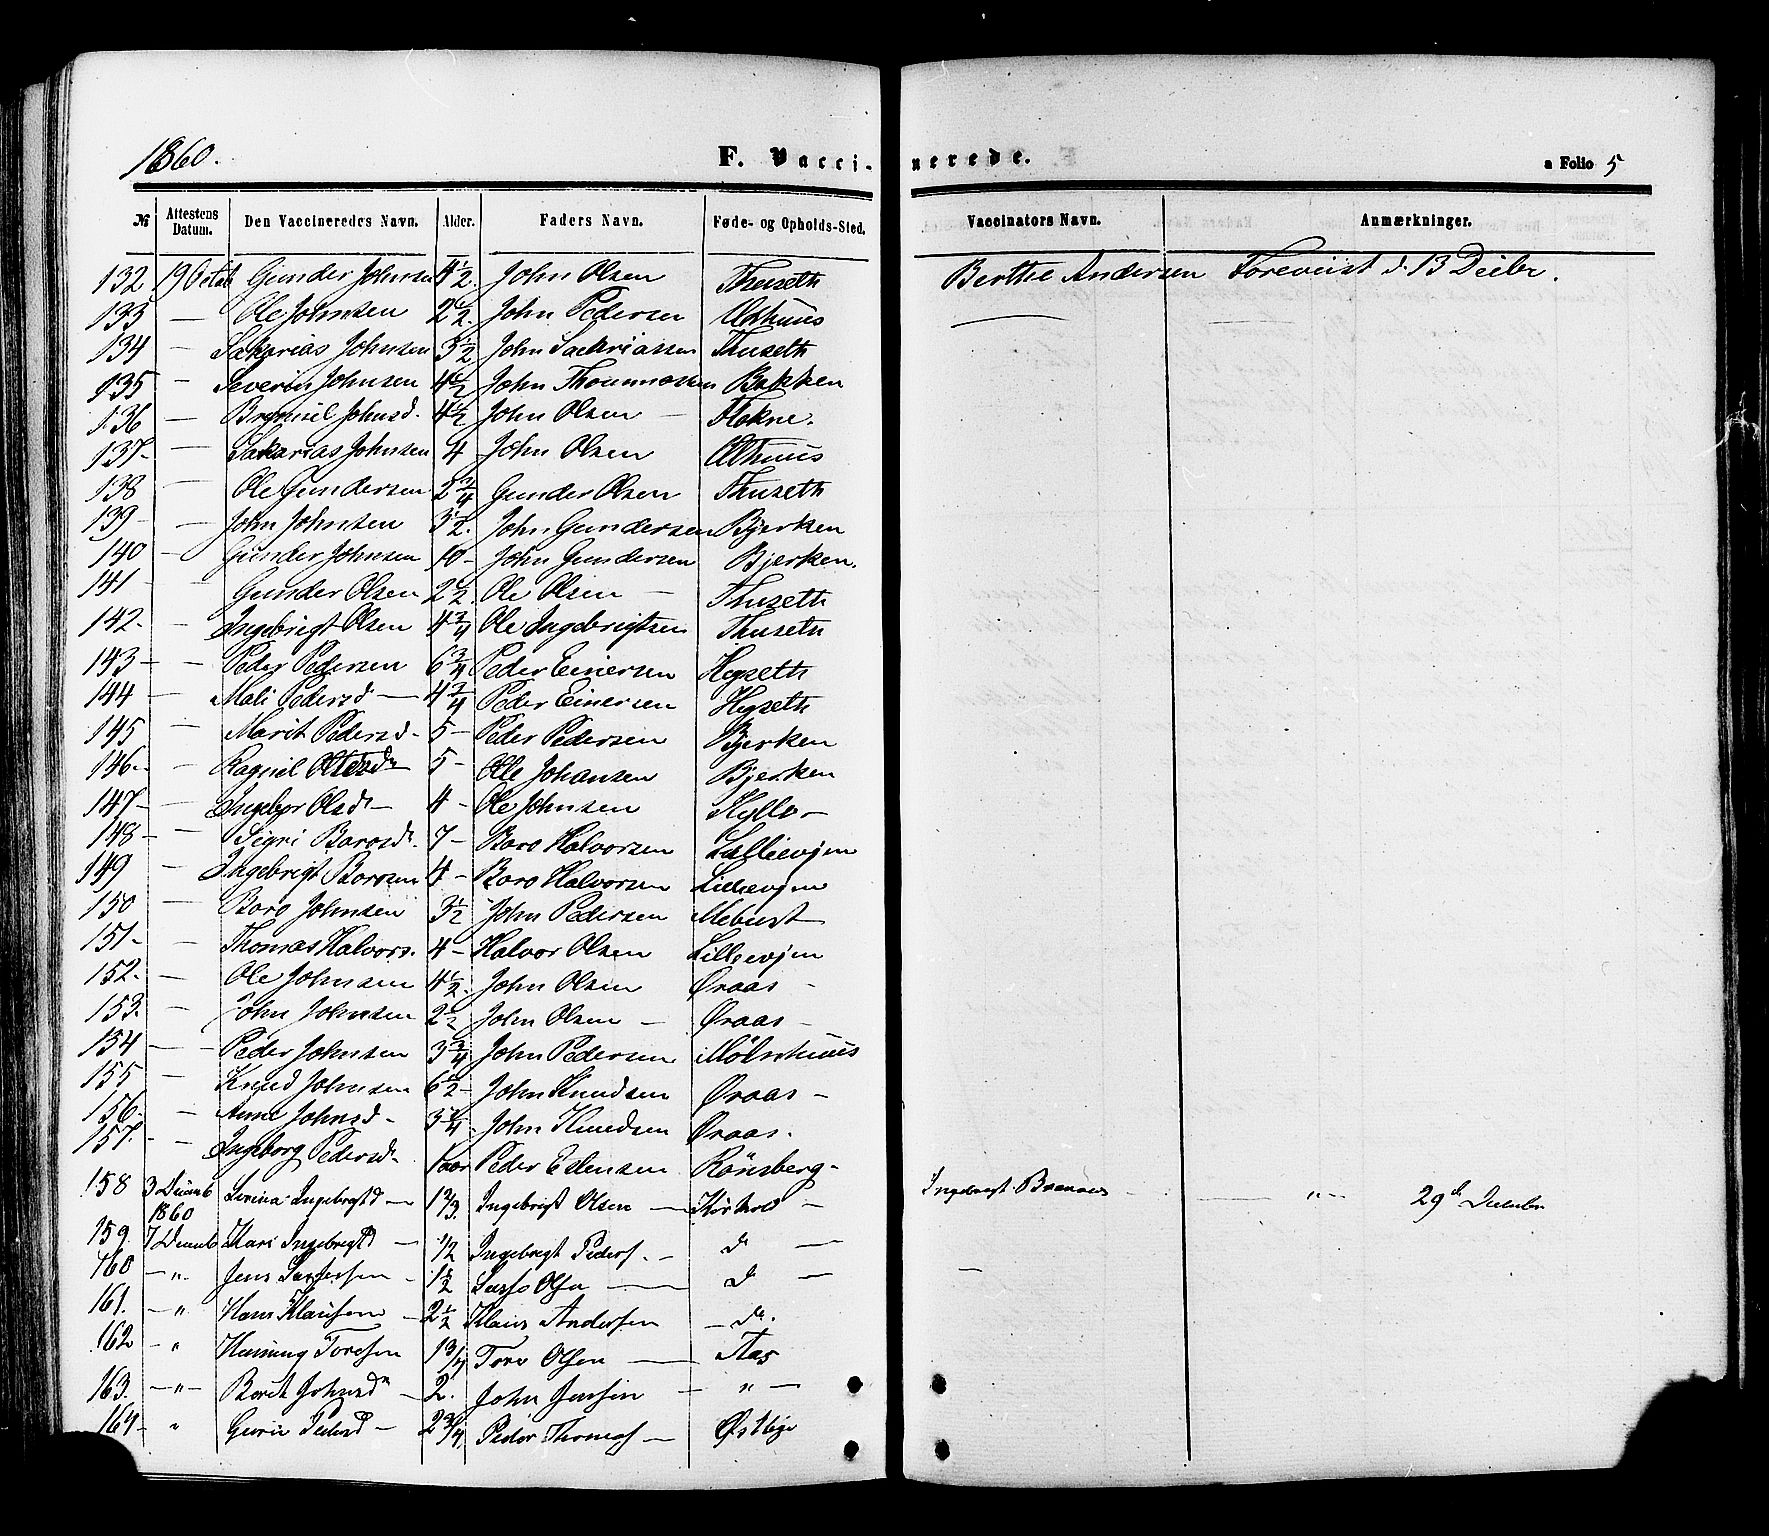 1860. F. Vacci- nerede. a Folio 5
№ Attestens Datum. Den Vaccineredes Navn. Alder. Faders Navn. Føde- og Opholds-Sted. Vaccinators Navn. Anmærkninger.
132 19 Octob Gunder Johnsen 4 1/2. John Olsen Thuseth Berthe Andersen Foreviist d. 13 Decbr.
133 — Ole Johnsen 2 1/2. John Pedersen Althuus — —
134 — Sakarias Johnsen 3 1/2 John Sackriassen Thuseth
135 — Severin Johnsen 4 1/2 John Thommassen Bakken
136 — Johnsd. 4 1/2 John Olsen — Flokne.
137- — Sakarias Johnsen 4 John Olsen Althuus
138 — Ole Gundersen 2 3/4 Gunder Olsen Thuseth
139- — John Johnsen 3 1/2. John Gundersen Bjerken
140 — Gunder Johnsen 10- John Gundersen Bjerken.
141 — Gunder Olsen 2 1/2. Ole Olsen — Thuseth
142- — Ingebrigt Olsen 4 3/4 Ole Ingebrigtsen Thuseth
143- — Peder Pedersen 6 3/4 Peder Einersen Hegseth
144 — Mali Pedersd — 4 3/4 Peder Einersen Hegseth
145 — Marit Pedersd- 5- Peder Pedersen Bjerken
146- — Ragnil Olesdr 5- Ole Johansen Bjerken
147- — Ingebor Olsdr- 4- Ole Johnsen Hyllo-
148- — Sigri Barosdr. 7- Baro Halvorsen Lillievjen
149 — Ingebrigt Barosen 4- Baro Halvorsen Lillievjen
150 — Baro Johnsen 3 1/2 John Pedersen Mebust
151- — Thomas Halvors. 4- Halvor Olsen Lillievjen
152- — Ole Johnsen 4 1/2. John Olsen Øraas -
153. — John Johnsen 2 1/2 John Olsen — Øraas-
154 — Peder Johnsen 3 3/4 John Pedersen Mölnhuus
155 — Knud Johnsen 6 1/2- John Knudsen Øraas -
156- — Anne Johnsd- 3 1/4 John Knudsen Øraas.
157. — Ingeborg Pedersd- 1 aar Peder Estensen Rönsberg-
158 3 Decemb 1860 Ingebrigtd — 1 2/3. Ingebrigt Olsen — Ingebrigt — " — 29de December
159. 7 Decemb Kari Ingebrigtd — 1/2 Ingebrigt Peders. - d —
160 — " . Jens 1 1/2 Olsen — d — —
161. — " Hans Klausen — 2 1/2 Klaus Andersen — do.
162 — " Toresen 1 3/4 Tore Olsen — Aas
163. — " — Berit Johnsdr — 2. John Jensen - " —
164- " Guru Pedersd - 2 3/4 Peder Thomas —